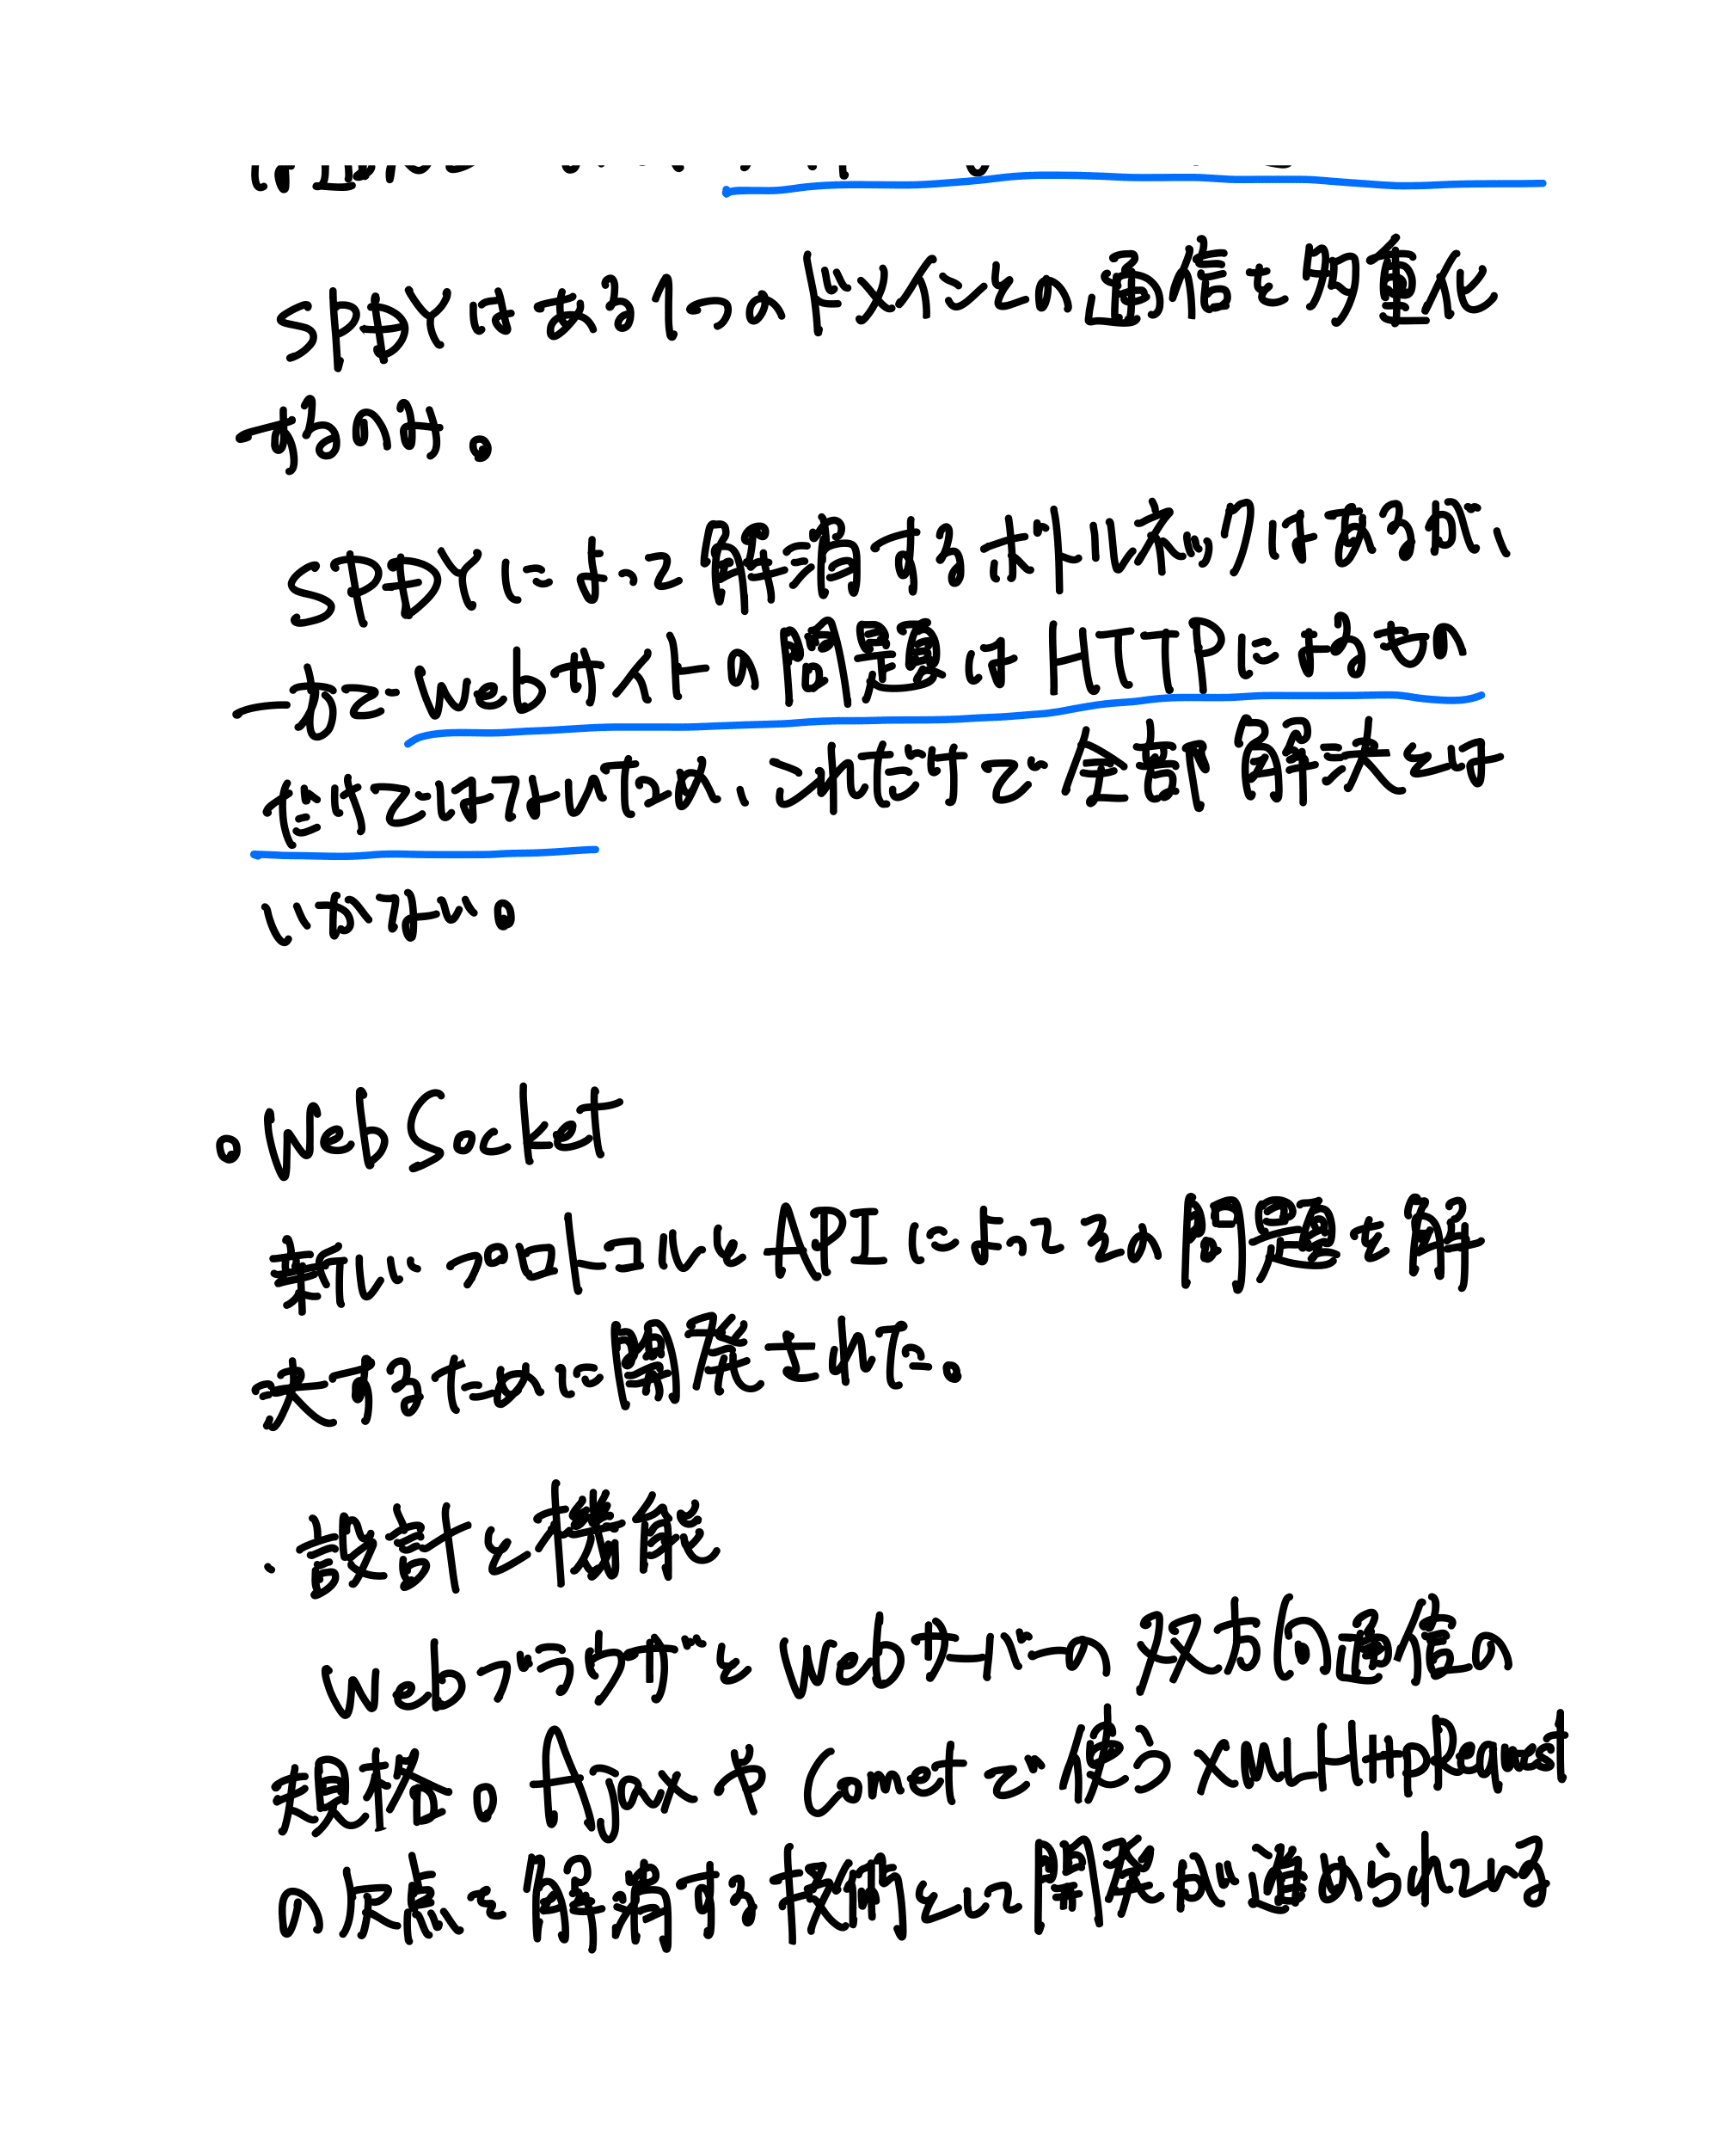 SPDYはある1つのドメインとの通信を多重化
するのみ。
SPDYによって解消するボトルネックはあるが、
一方でWebサイトの問題はHTTPによるもの
だけではないため、それだけで全部解決とは
いかない。
。WebSocket
新しいプロトコルとAPIによってその問題を解
決するために開発された。
・設計と機能
WebブラウザとWebサーバーの双方向通信の
規格。AjaxやCometで使うXMLHttpRequest
の欠点を解消する技術として開発が進められている